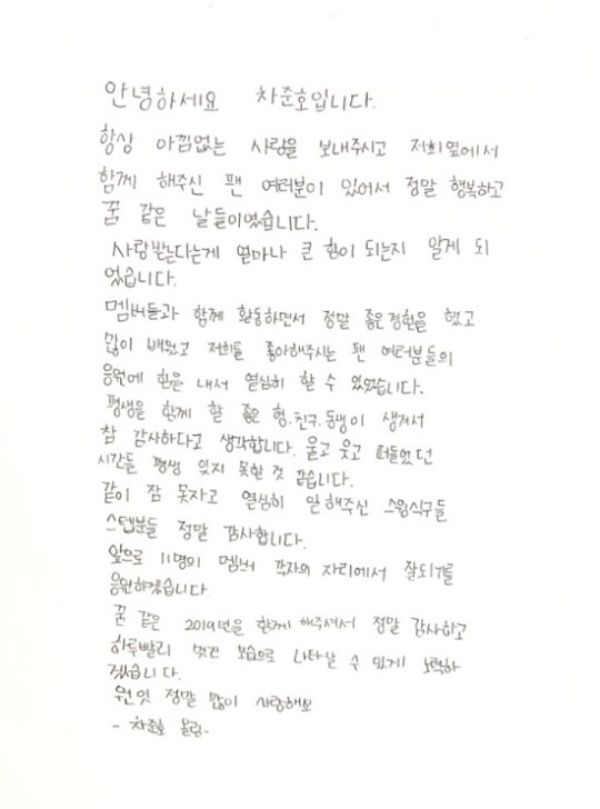 안녕하세요 차준호입니다.
항상 아낌없는 사랑을 보내주시고 저희옆에서
함께 해주신 팬 여러분이 있어서 정말 행복하고
꿈 같은 날들이였습니다.
사랑받는다는게 얼마나 큰 힘이 되는지 알게 되
었습니다.
멤버들과 함께 활동하면서 정말 좋은경험을 했고
많이 배웠고 저희를 좋아해주시는 팬 여러분들의
응원에 힘을 내서 열심히 할 수 있었습니다.
평생을 함께 할 좋은 형.친구.동생이 생겨서
참 감사하다고 생각합니다. 울고 웃고 떠들었던
시간들 평생 잊지 못할 것 같습니다.
같이 잠 못자고 열심히 일해주신 스윙식구들
스텝분들 정말 감사합니다.
앞으로 11명의 멤버 각자의 자리에서 잘되기를
응원하겠습니다
꿈 같은 2019년을 함께 해주셔서 정말 감사하고
하루빨리 멋진 모습으로 나타날 수 있게 노력하
겠습니다.
원잇 정말 많이 사랑해요
- 차준호 올림-